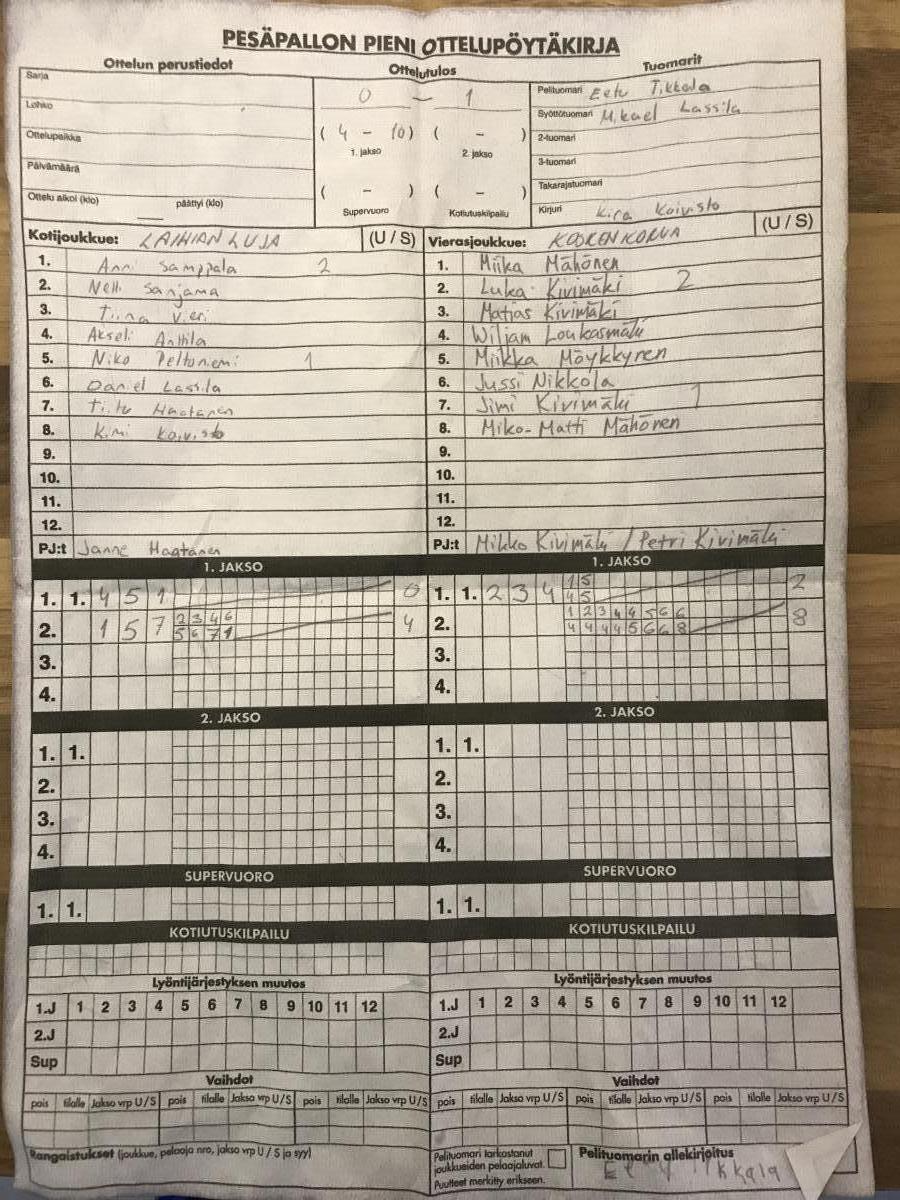 PESÄPALLON PIENI OTTELUPÖYTÄKIRJA
Ottelun perustiedot Ottelutulos Tuomarit
Sarja
Lohko
Ottelupaikka
Päivämäärä
Ottelu alkoi (klo) päättyi (klo)
0 - 1
( 4 - 10 ) ( - )
1. jakso 2. jakso
( - ) ( - )
Supervuoro Kotiutuskilpailu
Pelituomari Eetu Tikkala
Syöttötuomari Mikael Lassila
2-tuomari
3-tuomari
Takarajatuomari
Kirjuri Kira Koivisto
Kotijoukkue: LAIHIAN LUJA (U / S)
1. Anni Samppala 2
2. Nelli Sanjama
3. Tiina Vieri
4. Akseli Anttila
5. Niko Peltoniemi 1
6. Daniel Lassila
7. Tiitu Haatanen
8. Kimi Koivisto
9.
10.
11.
12.
PJ:t Janne Haatanen
Vierasjoukkue: KOSKENKORVA (U / S)
1. Miika Mähönen
2. Luka Kivimäki 2
3. Matias Kivimäki
4. Wiljam Loukasmäki
5. Miikka Möykkyren
6. Jussi Nikkola
7. Jimi Kivimäki 1
8. Miko-Matti Mähönen
9.
10.
11.
12.
PJ:t Mikko Kivimäki / Petri Kivimäki
1. JAKSO
1. 1. 4 5 1 0
2. 1 5 7 2 3 4 6 4
5 6 7 1
3.
4.
1. JAKSO
1. 1. 2 3 4 1 5 2
4 5
2. 1 2 3 4 4 5 6 6 8
4 4 4 4 5 6 6 8
3.
4.
2. JAKSO
1. 1.
2.
3.
4.
2. JAKSO
1. 1.
2.
3.
4.
SUPERVUORO
1. 1.
SUPERVUORO
1. 1.
KOTIUTUSKILPAILU
KOTIUTUSKILPAILU
Lyöntijärjestyksen muutos
1.J 1 2 3 4 5 6 7 8 9 10 11 12
2.J
Sup
Lyöntijärjestyksen muutos
1.J 1 2 3 4 5 6 7 8 9 10 11 12
2.J
Sup
Vaihdot
pois tilalle Jakso vrp U/S pois tilalle Jakso vrp U/S pois tilalle Jakso vrp U/S
Vaihdot
pois tilalle Jakso vrp U/S pois tilalle Jakso vrp U/S pois tilalle Jakso vrp U/S
Rangaistukset (joukkue, pelaaja nro, jakso vrp U / S ja syy)
Pelituomari tarkastanut
joukkueiden pelaajaluvat.
Puutteet merkitty erikseen.
Pelituomarin allekirjoitus